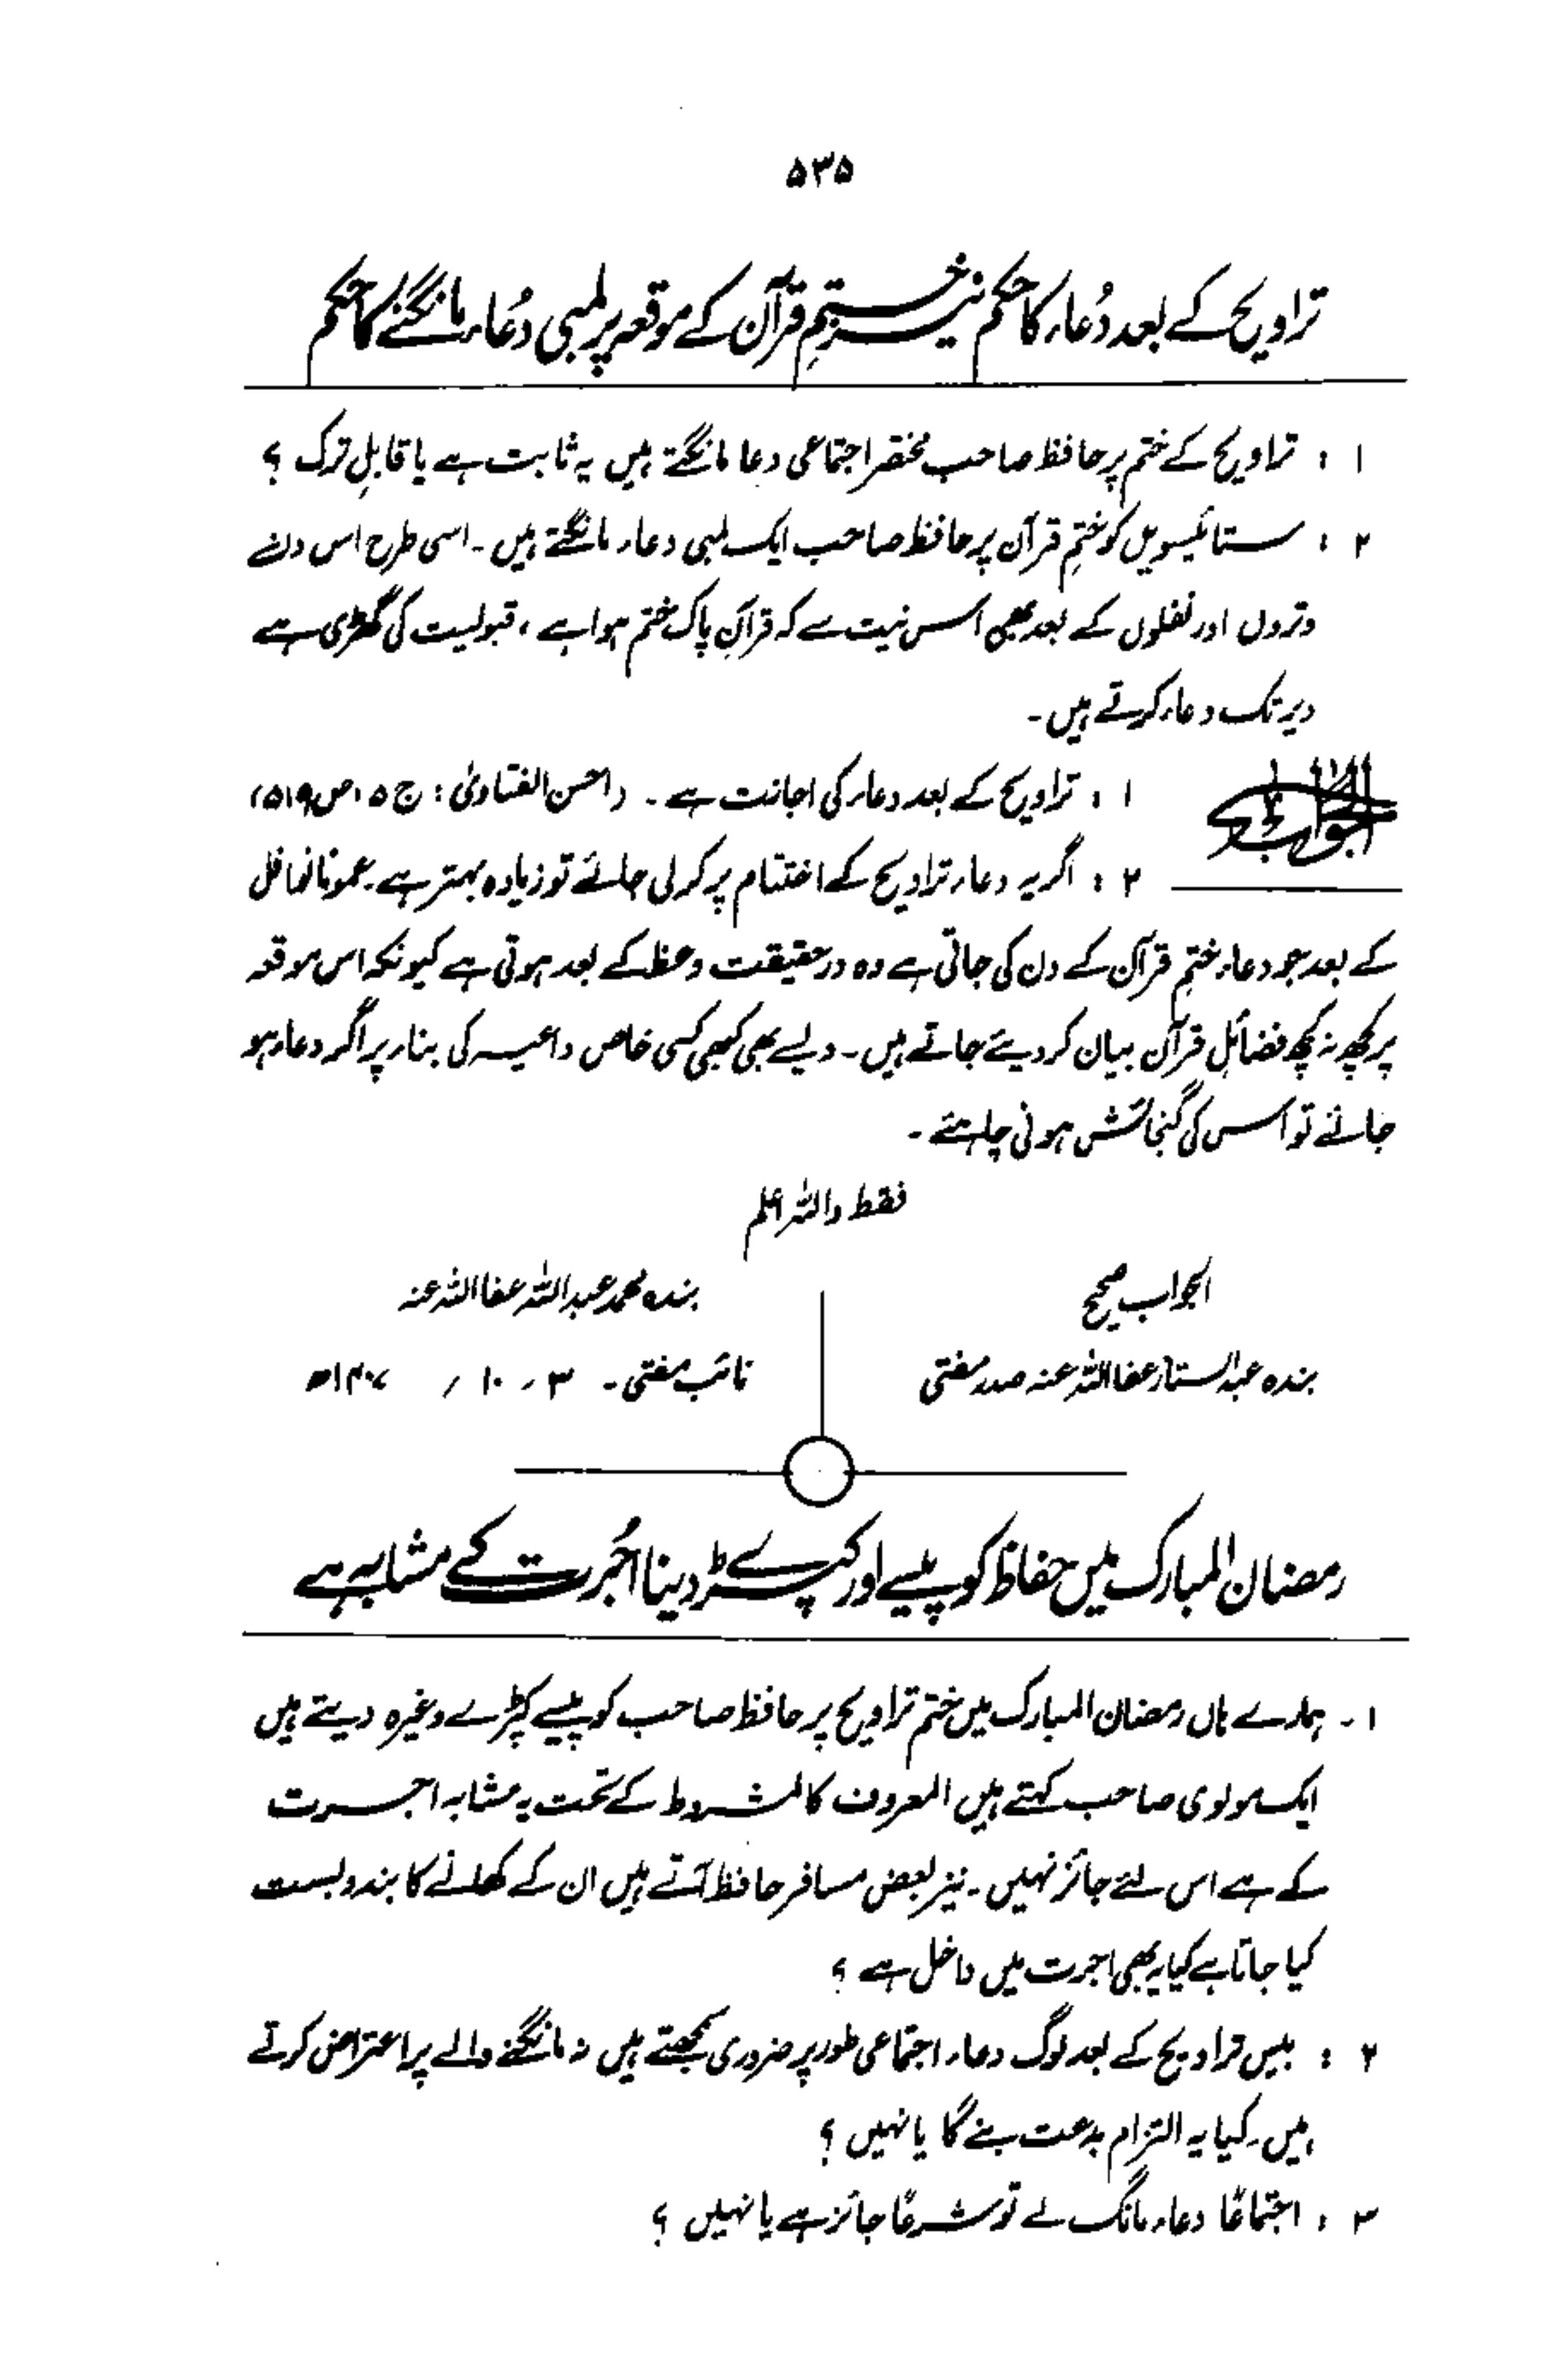 ۵۳۵
تراویح کے بعد دُعاء کا حکم نیز ختمِ قرآن کے موقعہ پر لمبی دُعاء مانگنے کا حکم
۱ : تراویح کے ختم پر حافظ صاحب مختصر اجتماعی دعا مانگتے ہیں یہ ثابت ہے یا قابلِ ترک ؟
۲ : ستائیسویں کو ختمِ قرآن پر حافظ صاحب ایک لمبی دعاء مانگتے ہیں ۔ اسی طرح اس دن
وتروں اور نفلوں کے بعد بھی اس نیت سے کہ قرآنِ پاک ختم ہوا ہے ، قبولیت کی گھڑی ہے
دیر تک دعاء کرتے ہیں ۔
الجواب
۱ : تراویح کے بعد دعاء کی اجازت ہے ۔ (احسن الفتاویٰ : ج ۵ ، ص ۵۱۹)
۲ : اگر یہ دعاء تراویح کے اختتام پر کر لی جائے تو زیادہ بہتر ہے ۔ عموماً نوافل
کے بعد جو دعاء ختمِ قرآن کے دن کی جاتی ہے وہ درحقیقت وعظ کے بعد ہوتی ہے کیونکہ اس موقعہ
پر کچھ نہ کچھ فضائلِ قرآن بیان کر دیئے جاتے ہیں ۔ ویسے بھی کبھی کسی خاص داعیہ کی بناء پر اگر دعاء ہو
جائے تو اس کی گنجائش ہونی چاہئے ۔
فقط واللہ اعلم
الجواب صحیح
بندہ عبد الستار عفا اللہ عنہ صدر مفتی
بندہ محمد عبد اللہ عفا اللہ عنہ
نائب مفتی ۔ ۳ ، ۱۰ / ۱۴۰۷ھ
رمضان المبارک میں حفاظ کو پیسے اور کپڑے دینا اُجرت کے مشابہ ہے
۱ ۔ ہمارے ہاں رمضان المبارک میں ختم تراویح پر حافظ صاحب کو پیسے کپڑے وغیرہ دیتے ہیں
ایک مولوی صاحب کہتے ہیں المعروف کالمشروط کے تحت یہ مشابہ اجرت
کے ہے اس لئے جائز نہیں ۔ نیز بعض مسافر حافظ آتے ہیں ان کے کھانے کا بندوبست
کیا جاتا ہے کیا یہ بھی اجرت میں داخل ہے ؟
۲ : بیس تراویح کے بعد لوگ دعاء اجتماعی طور پر ضروری سمجھتے ہیں نہ مانگنے والے پر اعتراض کرتے
ہیں ۔ کیا یہ التزام بدعت بنے گا یا نہیں ؟
۳ : اجتماعًا دعاء مانگ لے تو شرعًا جائز ہے یا نہیں ؟